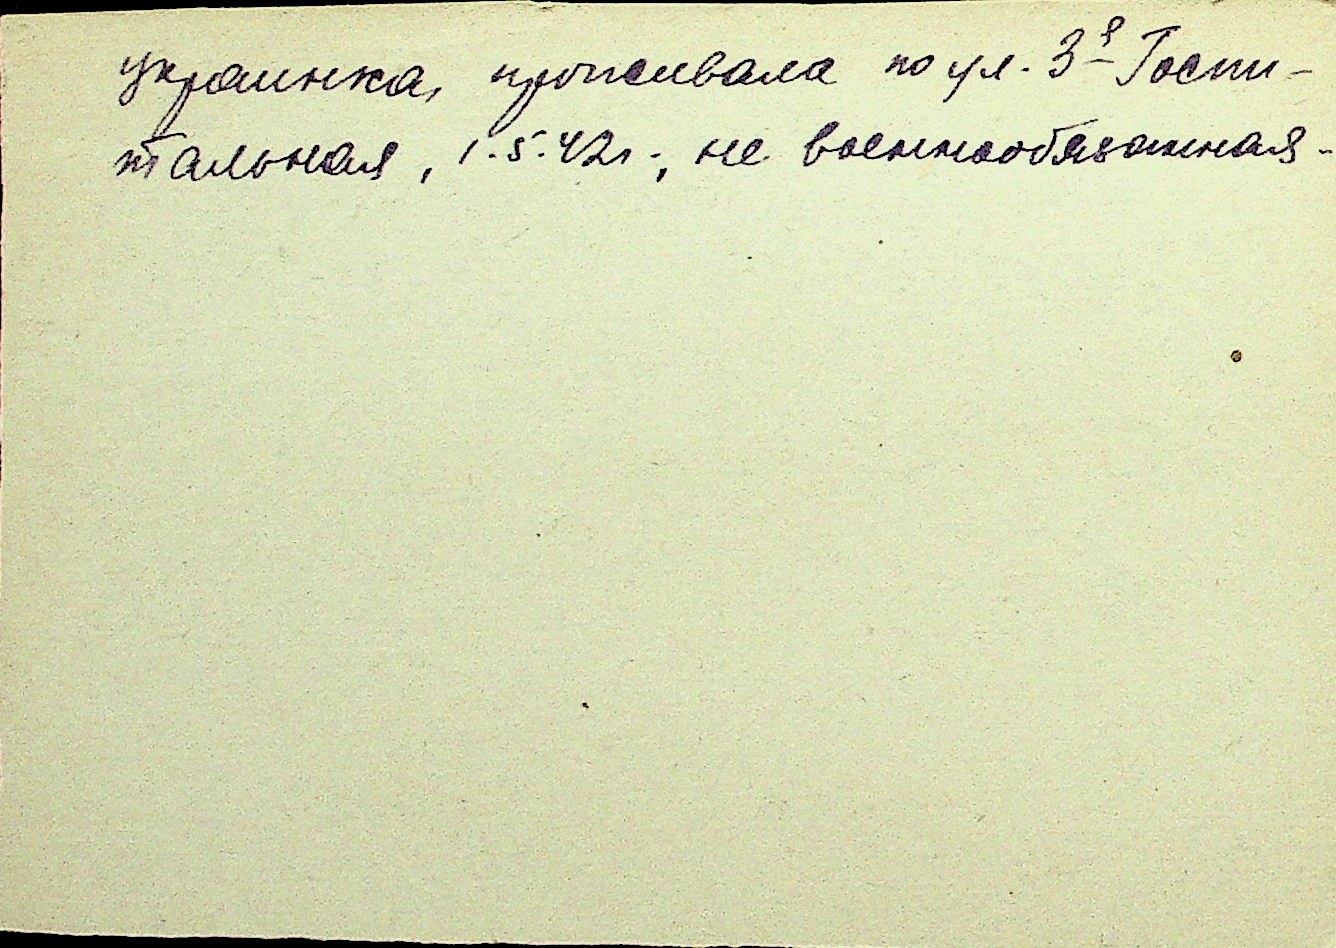 украинка, проживала по ул. 3я Госпи-
тальная, 1.5.42г., не военнообязанная-